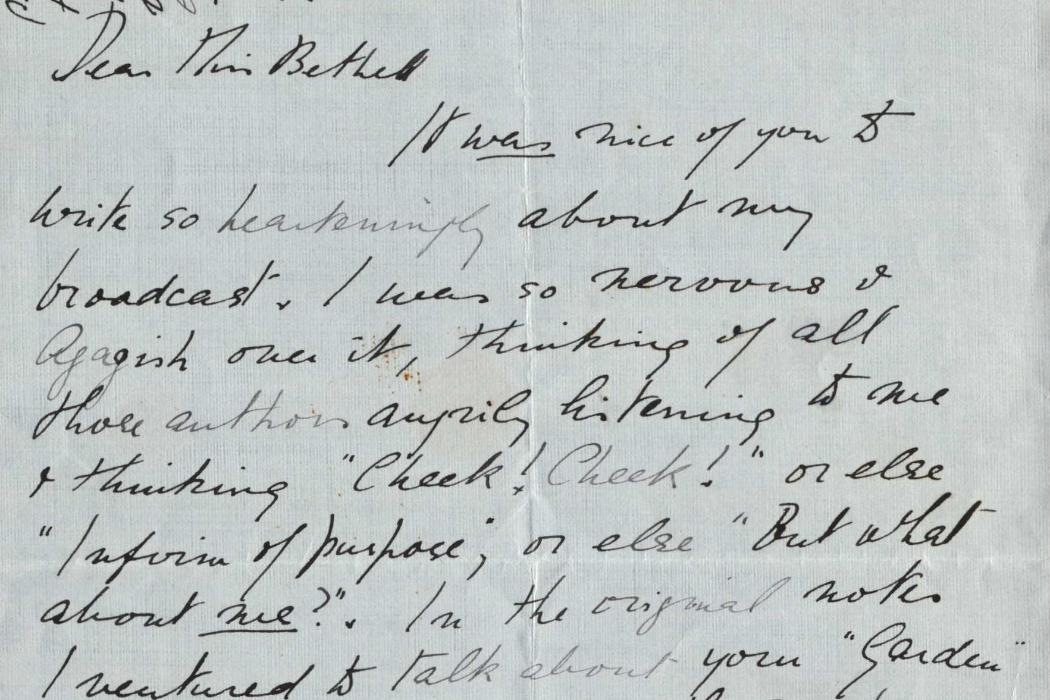 Dear Miss Bethell
It was nice of you to
write so hearteningly about my
broadcast. I was so nervous &
Agagish over it, thinking of all
those authors angrily listening to me
& thinking "Cheek! Cheek!" or else
"Infirm of purpose", or else "But what
about me?". In the original notes
I ventured to talk about your "Garden"